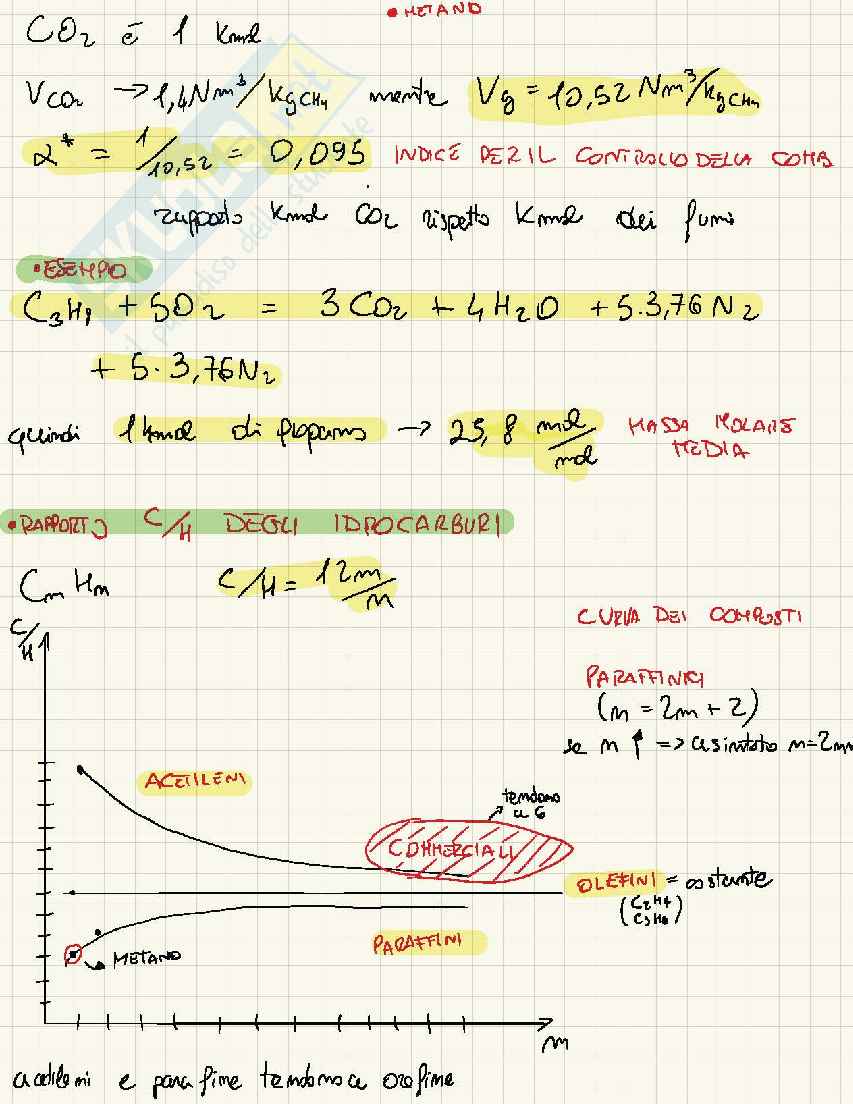 • METANO
CO₂ è 1 Kmol
VCO₂ → 1,4 Nm³/KgCH₄ mentre Vg = 10,52 Nm³/KgCH₄
α* = 1/10,52 = 0,095 INDICE PER IL CONTROLLO DELLA COMB
rapporto Kmol CO₂ rispetto Kmol dei fumi
• ESEMPO
C₃H₈ + 5O₂ = 3CO₂ + 4H₂O + 5·3,76 N₂
+ 5·3,76 N₂
quindi 1 kmol di propano → 25,8 mol/mol MASSA MOLARE
MEDIA
• RAPPORTO C/H DEGLI IDROCARBURI
CₘHₙ C/H = 12m/n
CURVA DEI COMPOSTI
C/H
PARAFFINICI
(n = 2m + 2)
se m ↑ => asintoto n=2m
ACETILENI
tendono
a 6
COMMERCIALI
OLEFINI = costante
(C₂H₄
C₃H₆)
PARAFFINI
METANO
m
acetileni e paraffine tendono a